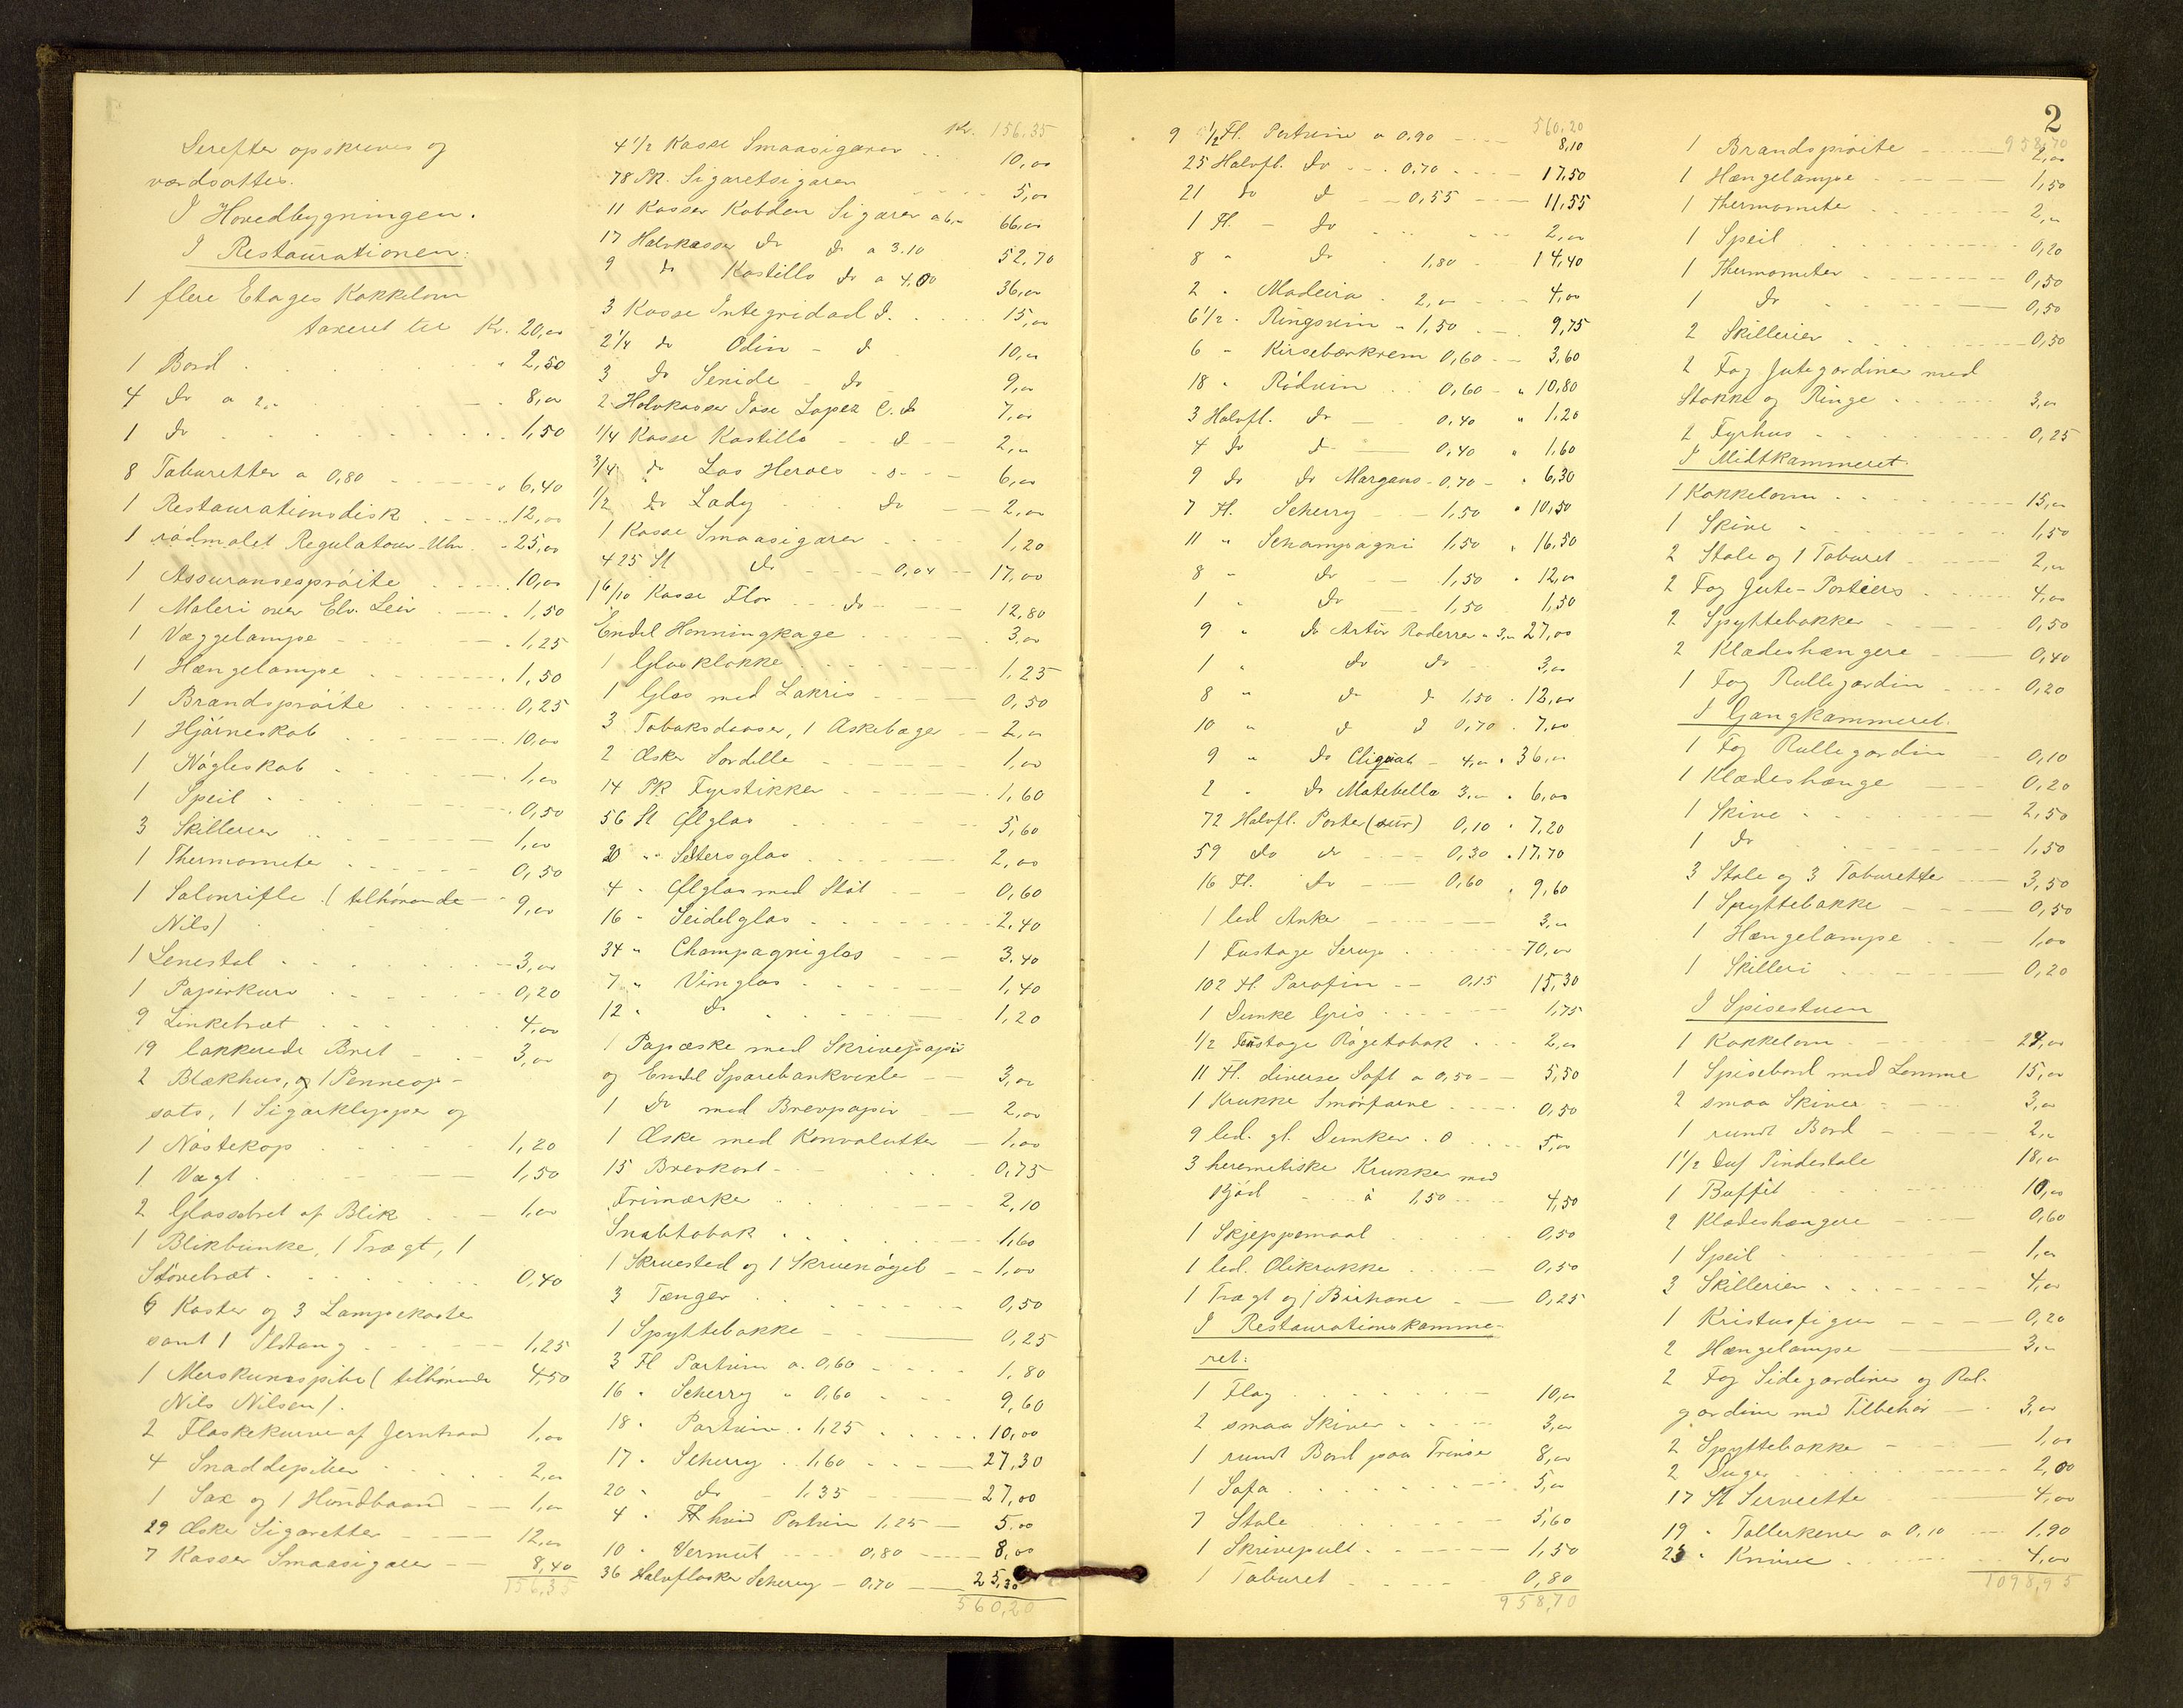 Derefter opskreves og
værdsattes.
I Hovedbygningen.
I Restaurationen:
1 flere Etages Kakkelovn
taxeret til Kr. 20,00
1 Bord " 2,50
4 do a 2,- 8,00
1 do 1,50
8 Taburetter a 0,80 " 6,40
1 Restaurationsdisk 12,00
1 rødmalet Regulatour-Uhr " 25,00
1 Assuransesprøite 10,00
1 Maleri over Elv. Leir 1,50
1 Væggelampe 1,25
1 Hængelampe 1,50
1 Brandsprøite 0,25
1 Hjørneskab 10,00
1 Nøgleskab 1,00
1 Speil 0,50
3 Skillerier 1,00
1 Thermometer 0,50
1 Salonrifle (tilhørende 9,00
Nils)
1 Lenestol 3,00
1 Papirkurv 0,20
9 Linkebræt 4,00
19 lakkerede Bret 3,00
2 Blækhus, og 1 Penneop-
sats, 1 Sigarklypper og
1 Nøstekop 1,20
1 Vægt 1,50
2 Glassbret af Blik 1,00
1 Blikbunke, 1 Trægt, 1
Støvebræt 0,40
6 Koster og 3 Lampekoste
samt 1 Ildtang 1,25
1 Merskumspibe (tilhørende 4,50
Nils Nilsen).
2 Flaskekurve af Jerntraad 1,00
4 Snaddepiber 2,00
1 Sax og 1 Hundbaand 1,00
29 Æsker Sigaretter 12,00
7 Kasser Smaasigarer 8,40
156,35
Kr. 156,35
4 1/2 Kasse Smaasigarer 10,00
78 Pk. Sigaretsigarer 5,00
11 Kasser Kobden Sigarer a 6,- 66,00
17 Halvkasser do do a 3.10 52,70
9 do Kastillo do a 4,00 36,00
3 Kasse Integridad d. 15,00
2 1/4 do Odin - d 10,00
3 do Senide - do 9,00
2 Halvkasser Jose Lopez C. do 7,00
1/4 Kasse Kastillo - d 2,00
3/4 do Las Heroes - d 6,00
1/2 do Lady do 2,00
1 Kasse Smaasigarer 1,20
425 St do 0,04 17,00
16/10 Kasse Flor do 12,80
Endel Honningkage 3,00
1 Glasklokke 1,25
1 Glas med Lakris 0,50
3 Tobaksdaaser, 1 Askebæger 2,00
2 Æsker Sardelle 1,00
14 Pk Fyrstikker 1,60
56 St Ølglas 5,60
20 " Seltersglas 2,00
4 " Ølglas med Støt 0,60
16 " Seidelglas 2,40
34 " Champagniglas 3.40
7 " Vinglas 1,40
12 " do 1,20
1 Papæske med Skrivepapir
og Endel Sparebankvexle 3,00
1 do med Brevpapir 2,00
1 Æske med Konvolutter 1,00
15 Brevkort 0,75
Frimærker 2,10
Snabtobak 1,60
1 Skruested og 1 Skruenøgel 1,00
3 Tænger 0,50
1 Spyttebakke 0,25
3 Fl Portvin a. 0,60 1,80
16 " Scherry " 0,60 9,60
18 " Portvin " 1,25 10,00
17 " Scherry " 1,60 27,30
20 " do - 1,35 27,00
4 " Fl hvid Portvin 1,25 5,00
10 " Vermut 0,80 8,00
36 Halvflasker Scherry - 0,70 25,30
560,20
560,20
9 1/2 Fl. Portvin a 0,90 8,10
25 Halvfl. do 0,70 17,50
21 do d 0,55 11,55
1 Fl. - do 2,00
8 " do 1,80 14,40
2 " Madeira 2,00 4,00
6 1/2 " Ringsvin " 1,50 9,75
6 " Kirsebærkrem 0,60 3,60
18 " Rødvin 0,60 " 10,80
3 Halvfl. do 0,40 " 1,20
4 do d 0,40 " 1,60
9 do do Margaus - 0,70 " 6,30
7 Fl. Scherry 1,50 " 10,50
11 " Schampagni 1,50 " 16,50
8 " do 1,50 " 12,00
1 " do 1,50 1,50
9 " do Artur Roderrer a 3,00 27,00
1 " do do 3,00
8 " d d 1,50 " 12,00
10 " d d 0,70 " 7,00
9 " do Cliquat - 4,00 " 36,00
2 " do Matebella 3,00 " 6,00
72 Halvfl. Porter (sur) 0,10 " 7,20
59 do do 0,30 " 17,70
16 Fl. do 0,60 " 9,60
1 led Anker 3,00
1 Fustage Serup 70,00
102 Fl. Parafin 0,15 15,30
1 Dunke Gris 1,75
1/2 Fustage Røgetobak 2,00
11 Fl. diverse Saft a 0,50 5,50
1 Krukke Smørfarve 0,50
9 led. gl. Dunker 5,00
3 heremetiske Krukker med
Kjød a 1,50 4,50
1 Skjeppemaal 0,50
1 led. Olikrukke 0,50
1 Trægt og 1 Birhane 0,25
I Restaurationskamme-
ret:
1 Flag 10,00
2 smaa Skiver 3,00
1 rundt Bord paa Trinse 8,00
1 Sofa 5,00
7 Stole 5,60
1 Skrivepult 1,50
1 Taburet 0,80
958,70
2
958,70
1 Brandsprøite 2,00
1 Hængelampe 1,50
1 Thermometer 2,00
1 Speil 0,20
1 Thermometer 0,50
1 do 0,50
2 Skillerier 0,50
2 Fag Jutegardiner med
Stokke og Ringe 3,00
2 Fyrhus 0,25
I Midtkammeret.
1 Kakkelovn 15,00
1 Skive 1,50
2 Stole og 1 Taburet 2,00
2 Fag Jute-Portiers 4,00
2 Spyttebakker 0,50
2 Klædeshængere 0,40
1 Fag Rullegardin 0,20
I Gangkammeret.
1 Fag Rullegardin 0,10
1 Klædeshænge 0,20
1 Skive 2,50
1 do 1,50
3 Stole og 3 Taburetter 3,50
1 Spyttebakke 0,50
1 Hængelampe 1,00
1 Skilleri 0,20
I Spisestuen
1 Kakkelovn 24,00
1 Spisebord med Lemme 15,00
2 smaa Skiver 3,00
1 rundt Bord 2,00
1 1/2 Dus Pindestole 18,00
1 Buffét 10,00
2 Klædeshængere 0,60
1 Speil 1,00
3 Skillerier 4,00
1 Kristusfigur 0,20
2 Hængelampe 3,00
2 Fag Sidegardiner og Rul-
gardiner med Tilbehør 3,00
2 Spyttebakker 1,00
2 Duger 2,00
17 St Servietter 4,00
19 " Tallerkener a 0,10 1,90
25 " Knive 4,00
1098,95